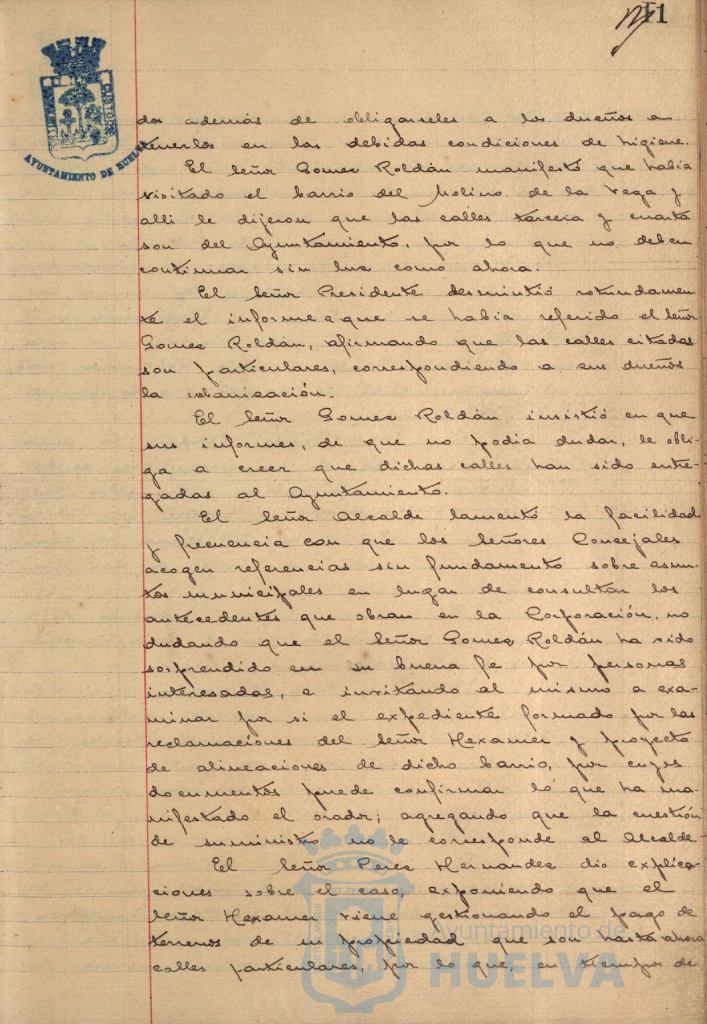 11
AYUNTAMIENTO DE HUELVA
dos además de obligarseles a los dueños a
tenerlos en las debidas condiciones de higiene.
El Señor Gomez Roldán manifestó que había
visitado el barrio del Molino de la Vega y
alli le dijeron que las calles tercera y cuarta
son del Ayuntamiento, por lo que no deben
continuar sin luz como ahora.
El Señor Presidente desmintió rotundamen-
te el informe a que se había referido el Señor
Gomez Roldán, afirmando que las calles citadas
son particulares, correspondiendo a sus dueños
la urbanización.
El Señor Gomez Roldán insistió en que
sus informes, de que no podia dudar, le obli-
ga a creer que dichas calles han sido entre-
gadas al Ayuntamiento.
El Señor Alcalde lamentó la facilidad
y frecuencia con que los señores Concejales
acogen referencias sin fundamento sobre asun-
tos municipales en lugar de consultar los
antecedentes que obran en la Corporación, no
dudando que el Señor Gomez Roldán ha sido
sorprendido en su buena fe por personas
interesadas, e invitando al mismo a exa-
minar por si el expediente formado por las
reclamaciones del Señor Hexamer y proyecto
de alineaciones de dicho barrio, por cuyos
documentos puede confirmar lo que ha ma-
nifestado el orador; agregando que la cuestión
de suministro no le corresponde al Alcalde.
El Señor Perez Hernandez dio explica-
ciones sobre el caso, exponiendo que el
Señor Hexamer viene gestionando el pago de
terrenos de su propiedad que son hasta ahora
calles particulares, por lo que, en tiempos de
Ayuntamiento de
HUELVA